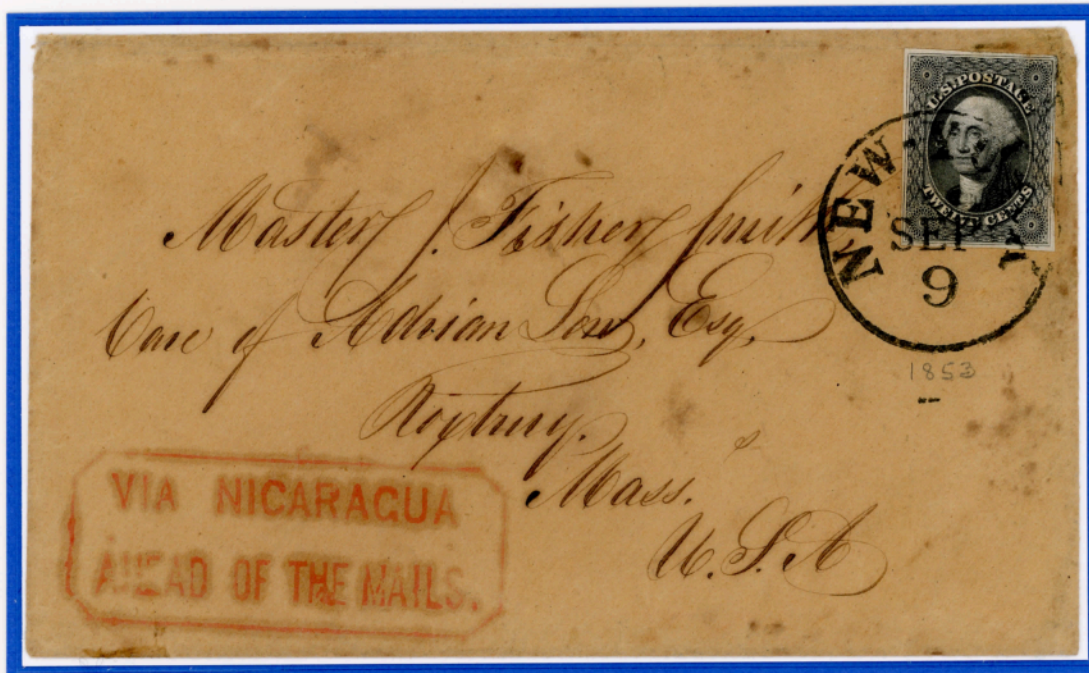 U.S. POSTAGE
TWELVE CENTS
NEW
SEP
9
1853
Master J. Fisher Smith
Care of Adrian Low, Esq.
Roxbury.
Mass.
U.S.A
VIA NICARAGUA
AHEAD OF THE MAILS.